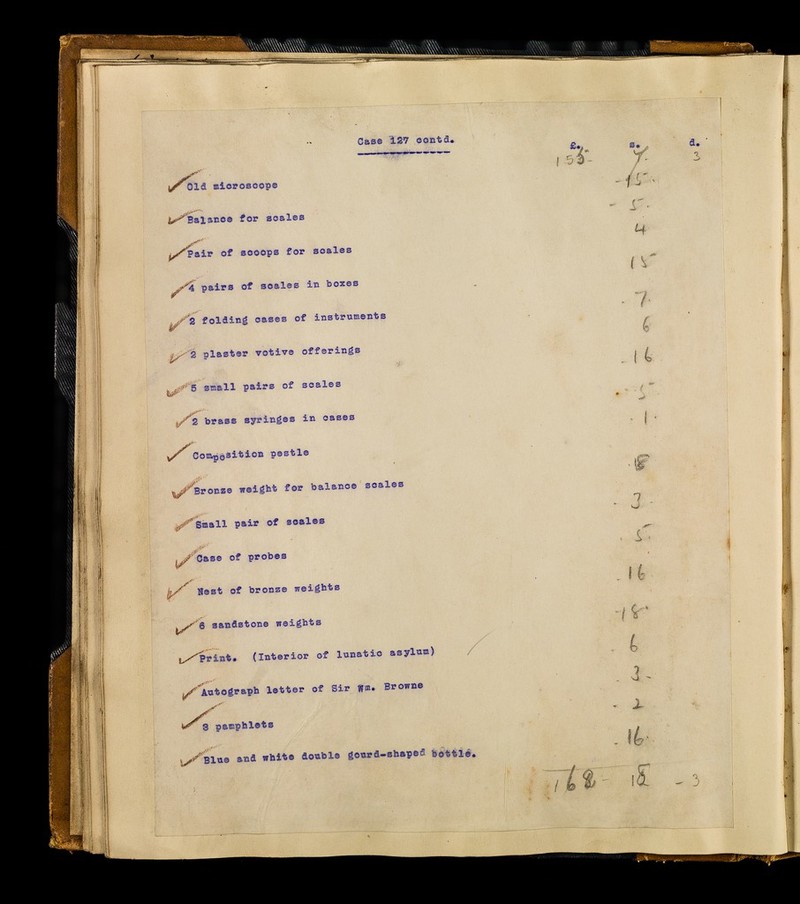 Case 127 contd.
£. s. d.
155- 7. 3
Old microscope -15-
Balance for scales - 5.
Pair of scoops for scales 4
4 pairs of scales in boxes 15
2 folding cases of instruments - 7.
2 plaster votive offerings 6
5 small pairs of scales -16
2 brass syringes in cases - 5-
Composition pestle . 1.
Bronze weight for balance scales
Small pair of scales - 3-
Case of probes . 5.
Nest of bronze weights . 16
6 sandstone weights -18-
Print. (Interior of lunatic asylum) . 6
Autograph letter of Sir Wm. Browne . 3-
pamphlets - 2
Blue and white double gourd-shaped bottle. - 16.
18 - 3